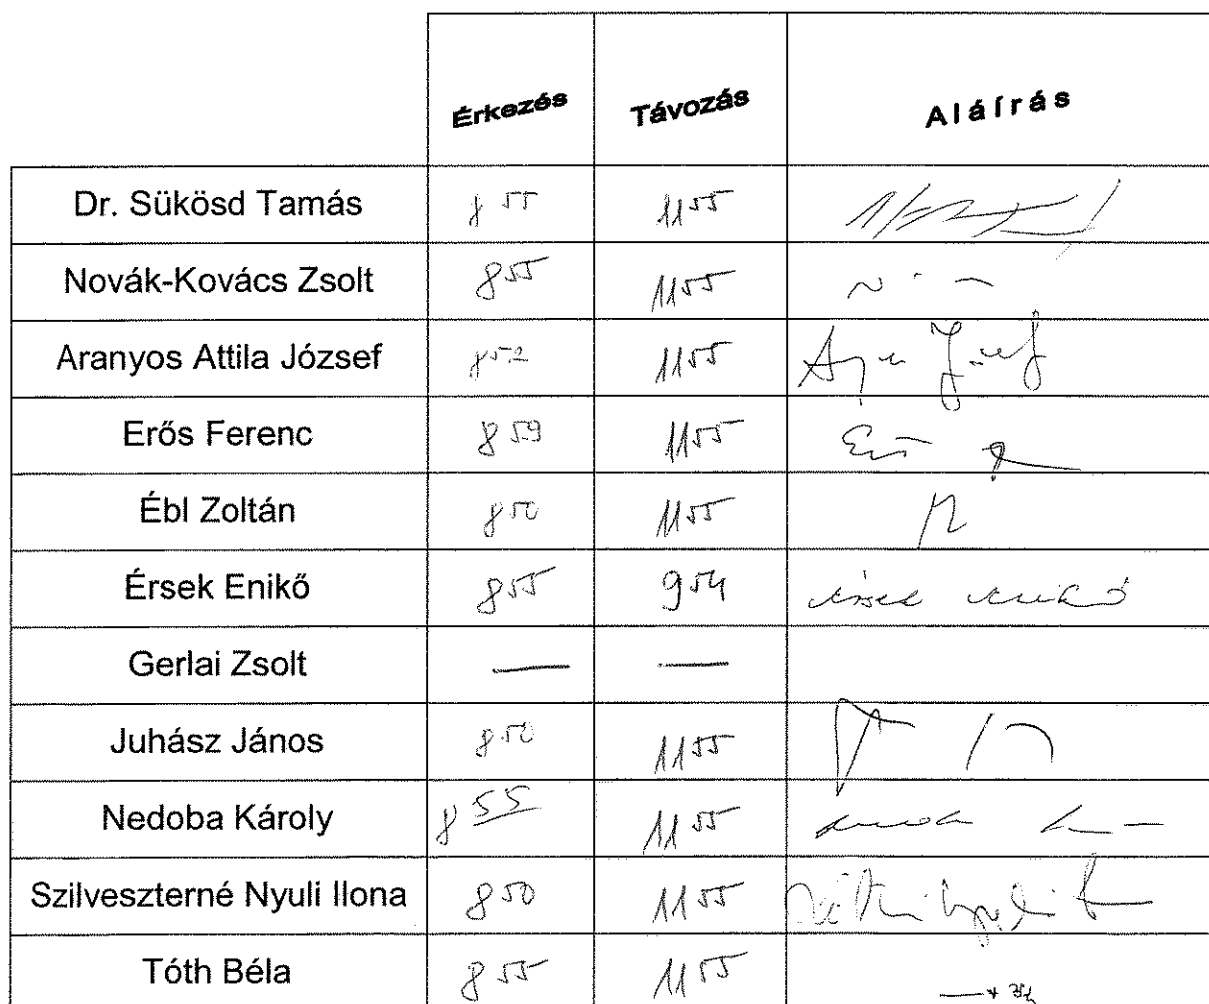 Érkezés Távozás Aláírás
Dr. Sükösd Tamás 8 55 11 55
Novák-Kovács Zsolt 8 55 11 55
Aranyos Attila József 8 52 11 55
Erős Ferenc 8 59 11 55
Ébl Zoltán 8 50 11 55
Érsek Enikő 8 55 9 54 Érsek Enikő
Gerlai Zsolt — —
Juhász János 8 50 11 55
Nedoba Károly 8 55 11 55
Szilveszterné Nyuli Ilona 8 50 11 55
Tóth Béla 8 55 11 55